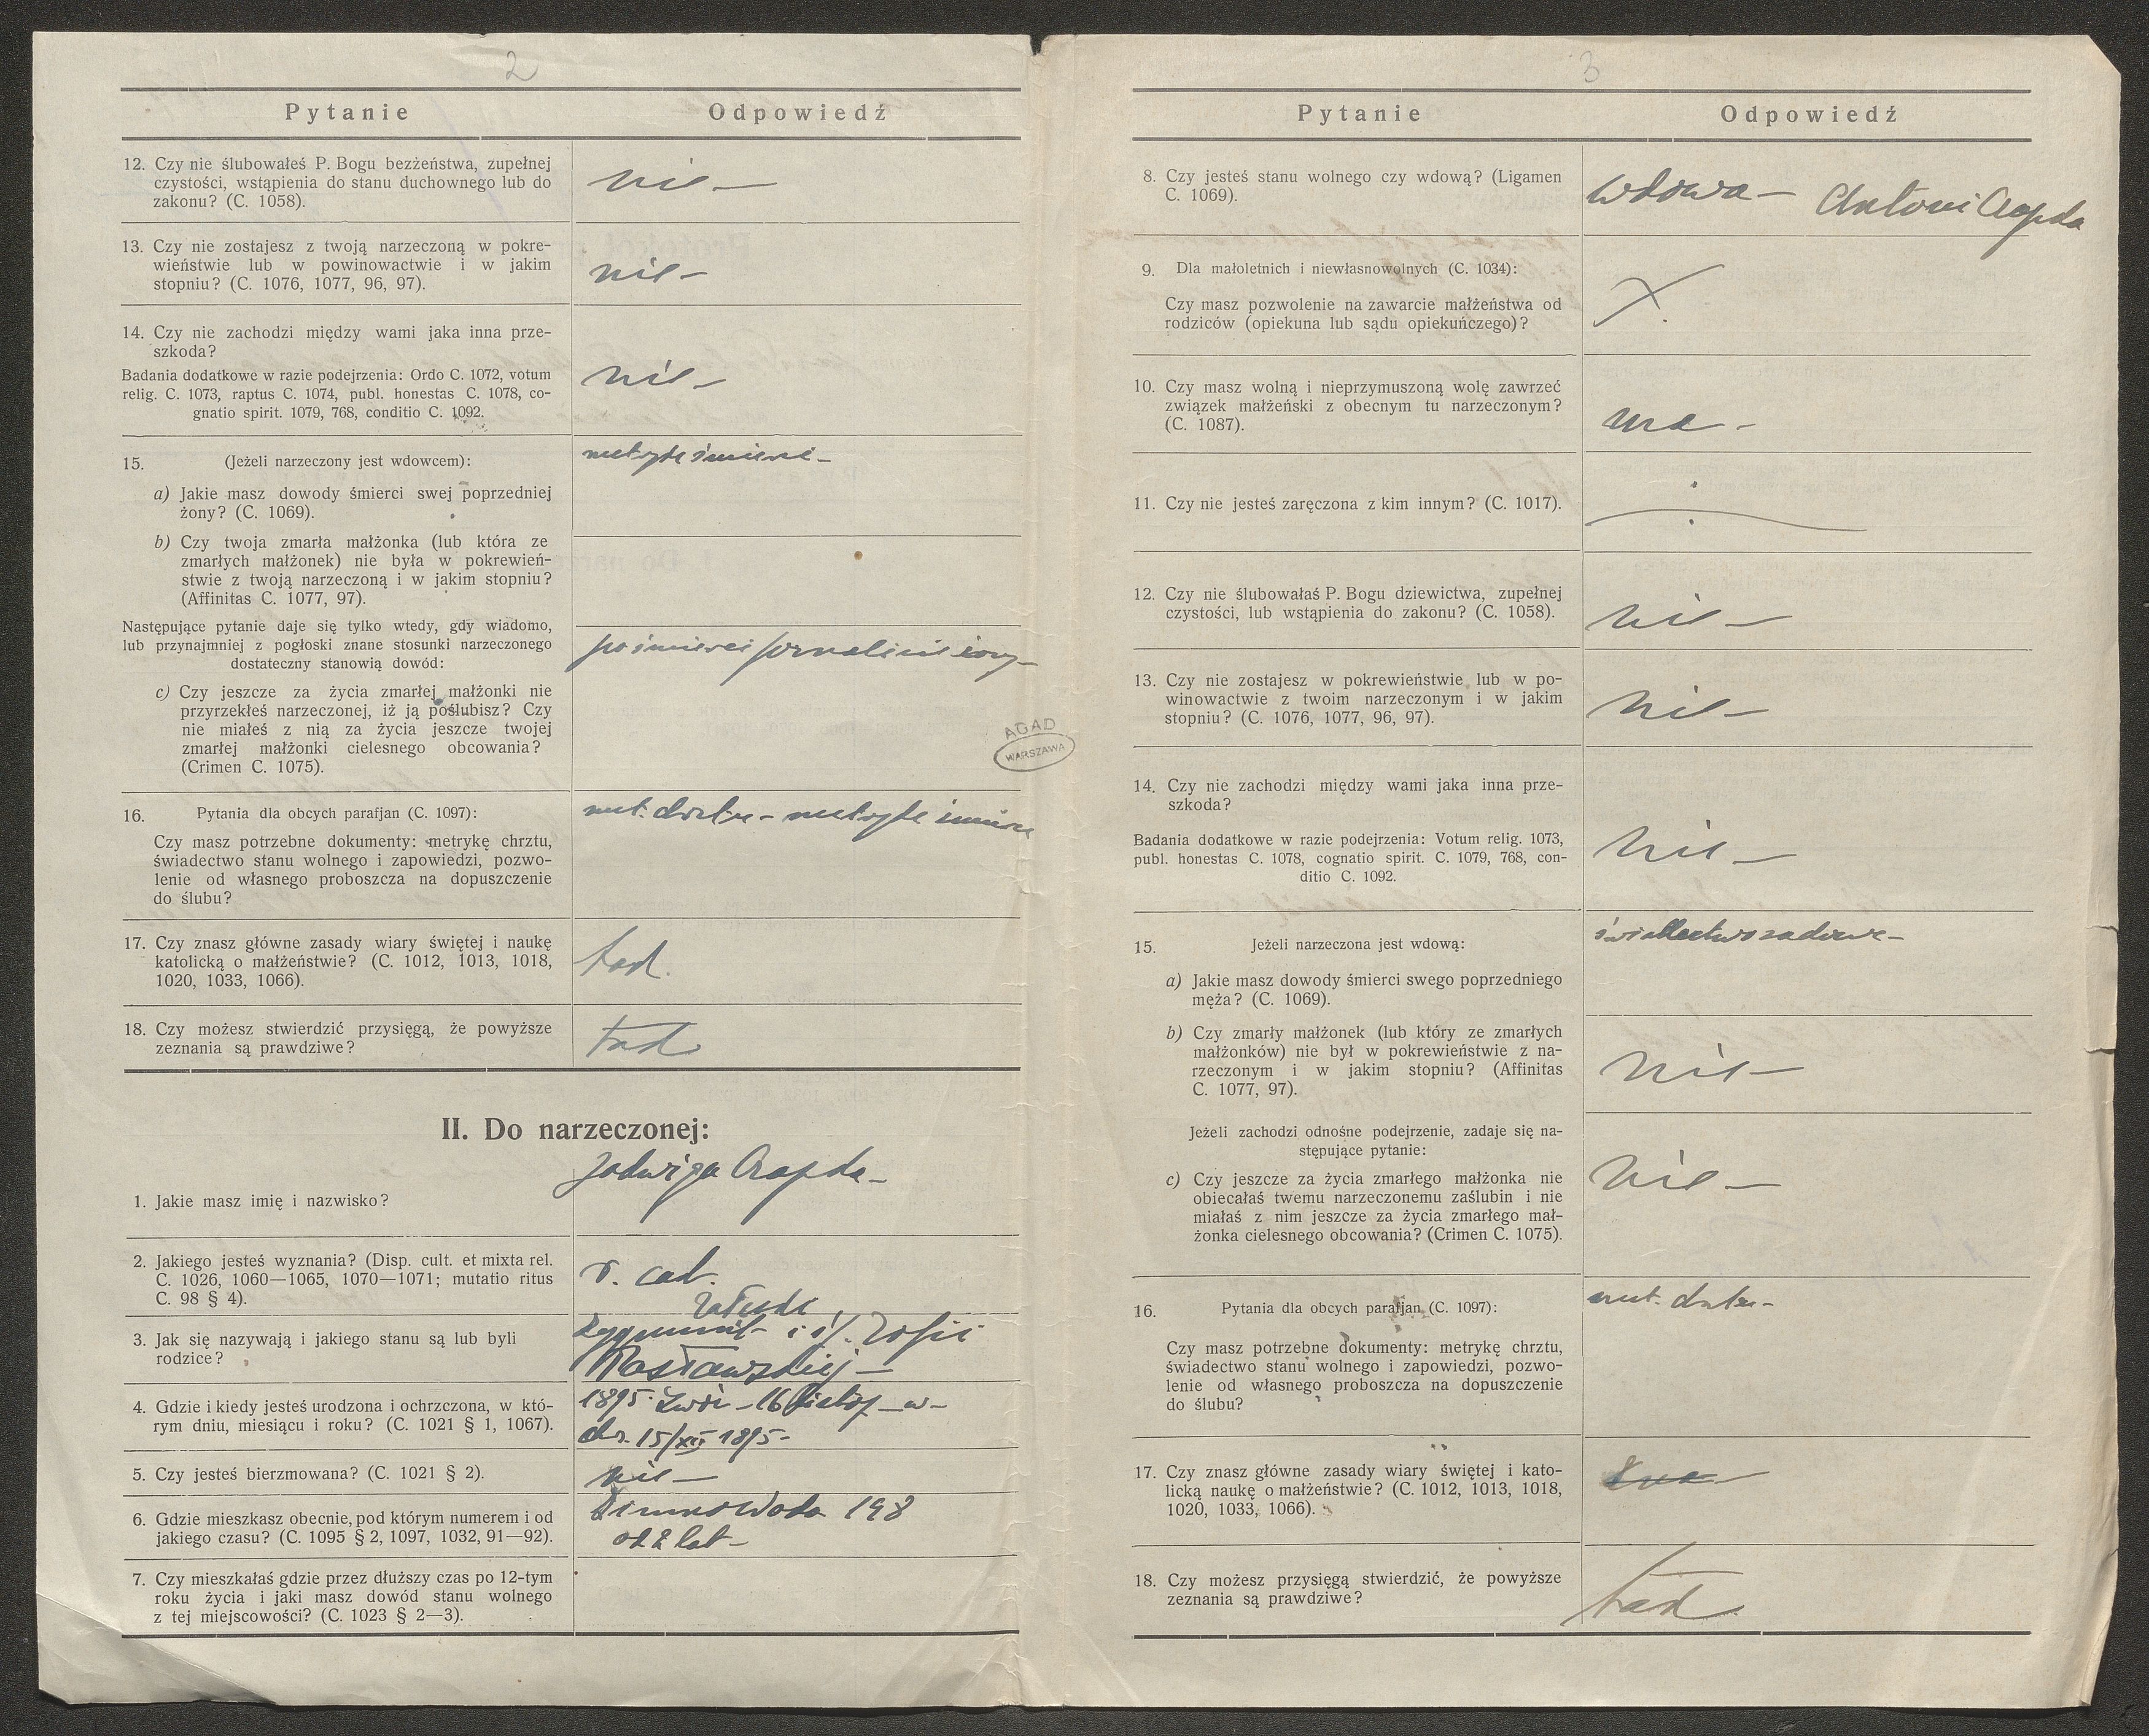 2
Pytanie
Odpowiedź
12. Czy nie ślubowałeś P. Bogu bezżeństwa, zupełnej
czystości, wstąpienia do stanu duchownego lub do
zakonu? (C. 1058).
nie —
13. Czy nie zostajesz z twoją narzeczoną w pokre-
wieństwie lub w powinowactwie i w jakim
stopniu? (C. 1076, 1077, 96, 97).
nie —
14. Czy nie zachodzi między wami jaka inna prze-
szkoda?
Badania dodatkowe w razie podejrzenia: Ordo C. 1072, votum
relig. C. 1073, raptus C. 1074, publ. honestas C. 1078, co-
gnatio spirit. 1079, 768, conditio C. 1092.
nie —
15. (Jeżeli narzeczony jest wdowcem):
metryka śmierci —
a) Jakie masz dowody śmierci swej poprzedniej
żony? (C. 1069).
b) Czy twoja zmarła małżonka (lub która ze
zmarłych małżonek) nie była w pokrewień-
stwie z twoją narzeczoną i w jakim stopniu?
(Affinitas C. 1077, 97).
Następujące pytanie daje się tylko wtedy, gdy wiadomo,
lub przynajmniej z pogłoski znane stosunki narzeczonego
dostateczny stanowią dowód:
po śmierci żony —
c) Czy jeszcze za życia zmarłej małżonki nie
przyrzekłeś narzeczonej, iż ją poślubisz? Czy
nie miałeś z nią za życia jeszcze twojej
zmarłej małżonki cielesnego obcowania?
(Crimen C. 1075).
AGAD
WARSZAWA
16. Pytania dla obcych parafjan (C. 1097):
met. chrztu — metryka śmierci
Czy masz potrzebne dokumenty: metrykę chrztu,
świadectwo stanu wolnego i zapowiedzi, pozwo-
lenie od własnego proboszcza na dopuszczenie
do ślubu?
17. Czy znasz główne zasady wiary świętej i naukę
katolicką o małżeństwie? (C. 1012, 1013, 1018,
1020, 1033, 1066).
tak.
18. Czy możesz stwierdzić przysięgą, że powyższe
zeznania są prawdziwe?
tak
II. Do narzeczonej:
1. Jakie masz imię i nazwisko?
Jadwiga Czapda —
2. Jakiego jesteś wyznania? (Disp. cult. et mixta rel.
C. 1026, 1060—1065, 1070—1071; mutatio ritus
C. 98 § 4).
r. cat.
3. Jak się nazywają i jakiego stanu są lub byli
rodzice?
Załuski
Zygmunt i Zofii
4. Gdzie i kiedy jesteś urodzona i ochrzczona, w któ-
rym dniu, miesiącu i roku? (C. 1021 § 1, 1067).
1895. Lwów — 16 listop —
chr. 15/XII 1895 —
5. Czy jesteś bierzmowana? (C. 1021 § 2).
nie —
6. Gdzie mieszkasz obecnie, pod którym numerem i od
jakiego czasu? (C. 1095 § 2, 1097, 1032, 91—92).
Zimnowoda 198
od 2 lat —
7. Czy mieszkałaś gdzie przez dłuższy czas po 12-tym
roku życia i jaki masz dowód stanu wolnego
z tej miejscowości? (C. 1023 § 2—3).
3
Pytanie
Odpowiedź
8. Czy jesteś stanu wolnego czy wdową? (Ligamen
C. 1069).
wdowa — Antoni Czapda
9. Dla małoletnich i niewłasnowolnych (C. 1034):
Czy masz pozwolenie na zawarcie małżeństwa od
rodziców (opiekuna lub sądu opiekuńczego)?
10. Czy masz wolną i nieprzymuszoną wolę zawrzeć
związek małżeński z obecnym tu narzeczonym?
(C. 1087).
ma —
11. Czy nie jesteś zaręczona z kim innym? (C. 1017).
12. Czy nie ślubowałaś P. Bogu dziewictwa, zupełnej
czystości, lub wstąpienia do zakonu? (C. 1058).
nie —
13. Czy nie zostajesz w pokrewieństwie lub w po-
winowactwie z twoim narzeczonym i w jakim
stopniu? (C. 1076, 1077, 96, 97).
nie —
14. Czy nie zachodzi między wami jaka inna prze-
szkoda?
Badania dodatkowe w razie podejrzenia: Votum relig. 1073,
publ. honestas C. 1078, cognatio spirit. C. 1079, 768, con-
ditio C. 1092.
nie —
15. Jeżeli narzeczona jest wdową:
świadectwo sądowe —
a) Jakie masz dowody śmierci swego poprzedniego
męża? (C. 1069).
b) Czy zmarły małżonek (lub który ze zmarłych
małżonków) nie był w pokrewieństwie z na-
rzeczonym i w jakim stopniu? (Affinitas
C. 1077, 97).
nie —
Jeżeli zachodzi odnośne podejrzenie, zadaje się na-
stępujące pytanie:
c) Czy jeszcze za życia zmarłego małżonka nie
obiecałaś twemu narzeczonemu zaślubin i nie
miałaś z nim jeszcze za życia zmarłego mał-
żonka cielesnego obcowania? (Crimen C. 1075).
nie —
16. Pytania dla obcych parafjan (C. 1097):
met. chrztu —
Czy masz potrzebne dokumenty: metrykę chrztu,
świadectwo stanu wolnego i zapowiedzi, pozwo-
lenie od własnego proboszcza na dopuszczenie
do ślubu?
17. Czy znasz główne zasady wiary świętej i kato-
licką naukę o małżeństwie? (C. 1012, 1013, 1018,
1020, 1033, 1066).
zna —
18. Czy możesz przysięgą stwierdzić, że powyższe
zeznania są prawdziwe?
tak